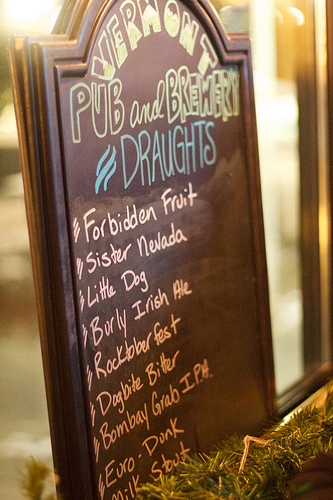 VERMONT
PUB and BREWERY
DRAUGHTS
Forbidden Fruit
Sister Nevada
Little Dog
Burly Irish Ale
Rocktoberfest
Dogbite Bitter
Bombay Grab I.P.A.
Euro-Dunk
Milk Stout